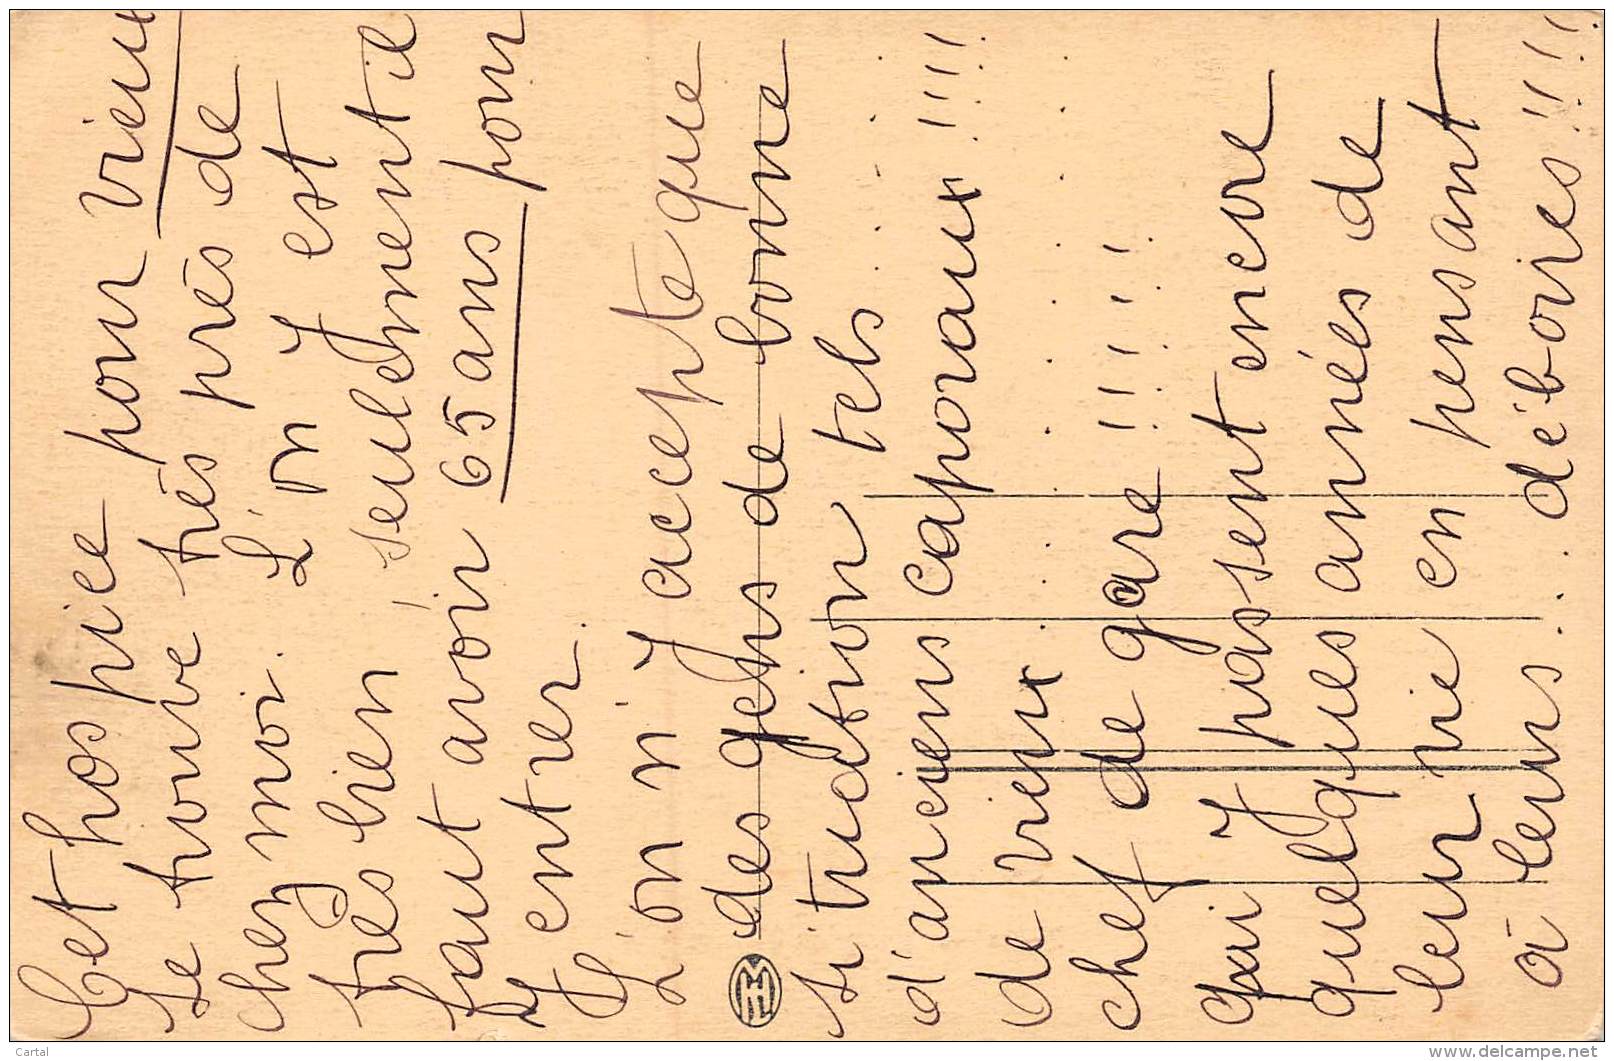 Cet hospice pour vieux
se trouve très près de
chez moi. L'on y est
très bien, seulement il
faut avoir 65 ans pour
y entrer.
L'on n'y accepte que
des gens de bonne
situdtion tels....
d'anciens caporaux!!!!
de vieux........
chef de gare!!!!!!
qui y passent encore
quelques années de
leur vie en pensant
à leurs... déboires!!!!
Cartal
www.delcampe.net